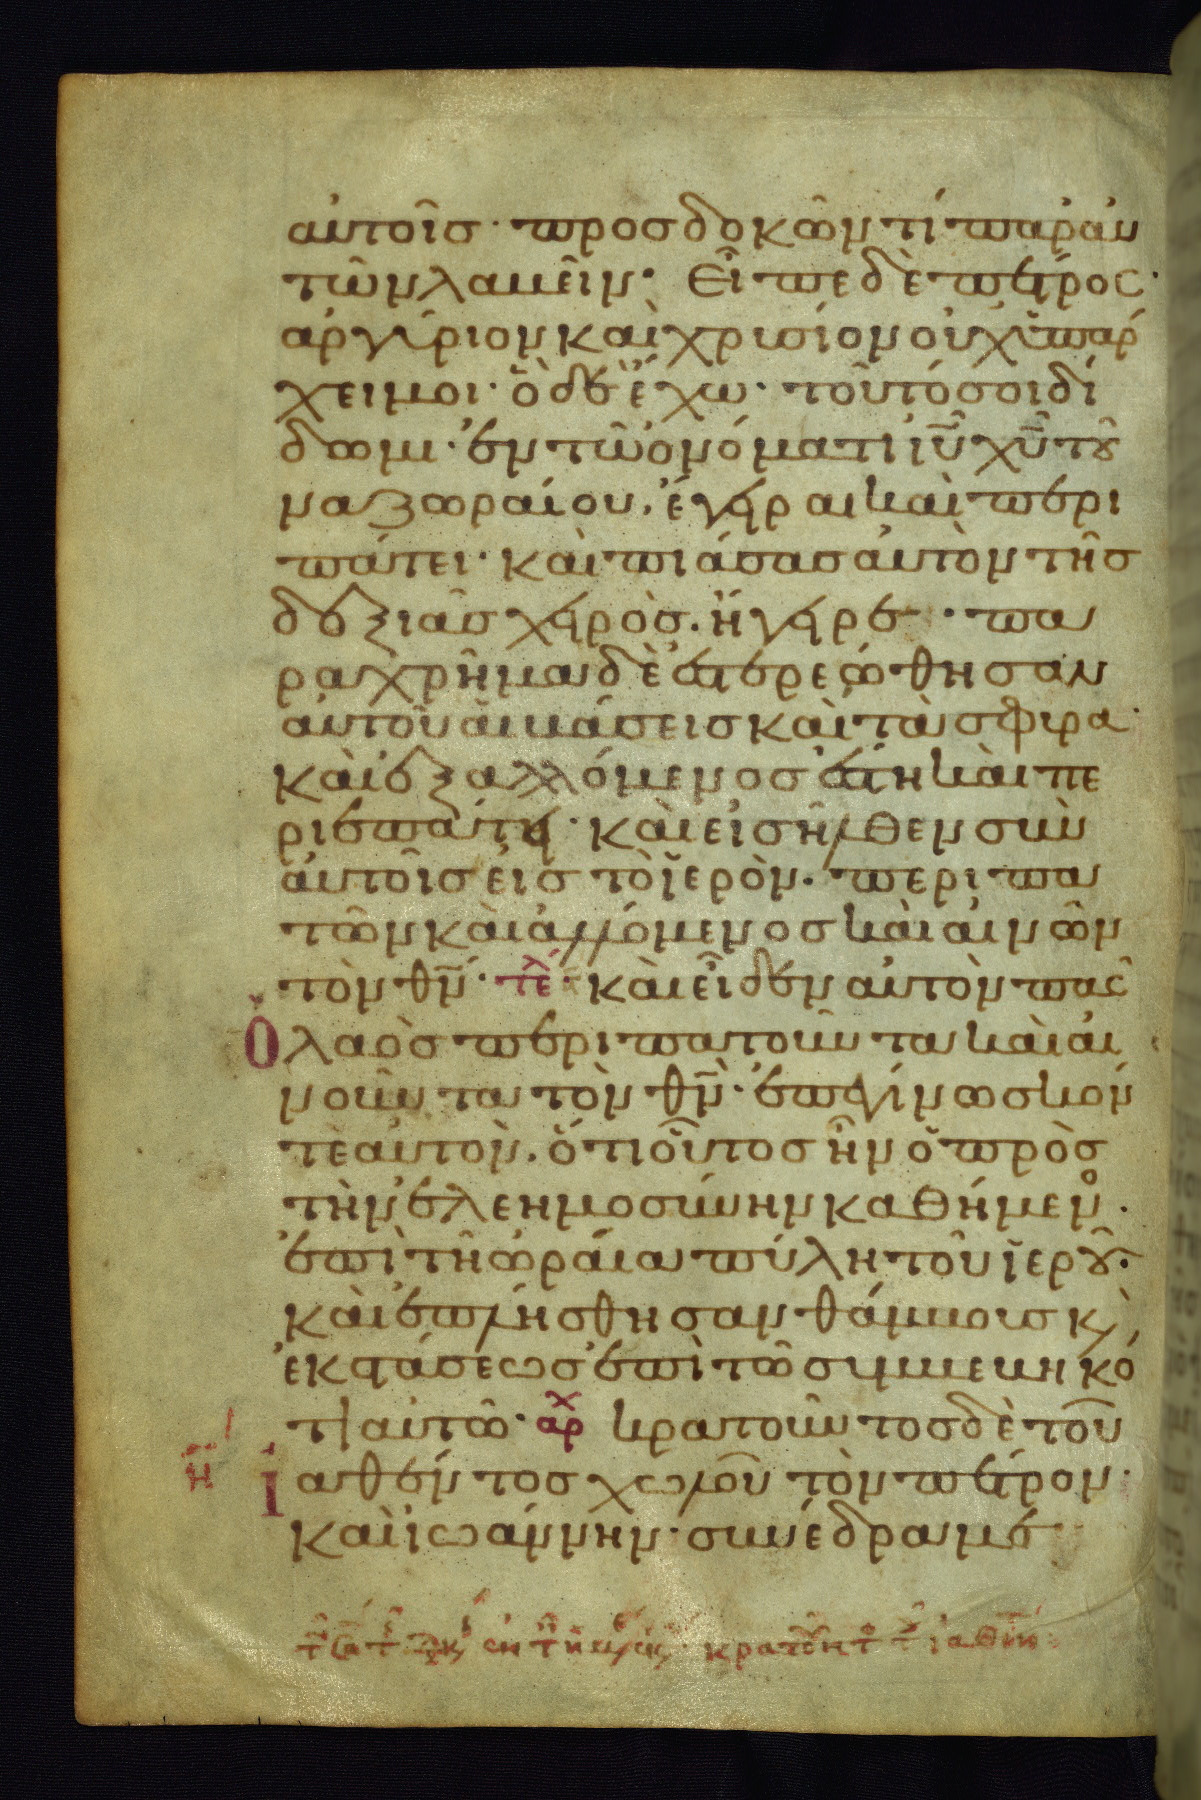 αὐτοῖσ· προσδοκῶν τί παρ' αὐ
τῶν λαβεῖν· Εἶπε δὲ πέτροσ·
ἀργύριον καὶ χρυσίον οὐχ ὑπάρ
χει μοι· ὃ δὲ ἔχω· τοῦτό σοι δί
δωμι· ἐν τῶ ὀνόματι ἰῦ χῦ τοῦ
ναζωραίου, ἔγειραι καὶ περι
πάτει· καὶ πιάσασ αὐτὸν τῆσ
δεξιᾶσ χειρὸσ. ἤγειρε· πα
ραχρῆμα δὲ ἐστερεώθησαν
αὐτοῦ αἱ βάσεισ καὶ τὰ σφυρα·
καὶ ἐξαλλόμενοσ ἔστη καὶ πε
ριεπάτει· καὶ εἰσῆλθεν σὺν
αὐτοῖσ εἰσ τὸ ἱερὸν. περιπα
τῶν καὶ ἁλλόμενοσ καὶ αἰνῶν
τὸν θν· τελ καὶ εἶδεν αὐτὸν πᾶσ
ὁ λαὸσ περιπατοῦντα καὶ αἰ
νοῦντα τὸν θν· ἐπεγίνωσκόν
τὲ αὐτον. ὅτι οὗτοσ ἦν ὁ πρὸσ
τὴν ἐλεημοσύνην καθήμενοσ.
ἐπὶ τῆ ὡραία πύλη τοῦ ἱεροῦ·
καὶ ἐπλήσθησαν θάμβουσ κὶ
ἐκστάσεωσ ἐπὶ τῶ συμβεβηκό
τι αὐτῶ· αρχ κρατοῦντοσ δὲ τοῦ
ἰαθέντοσ χωλοῦ τὸν πέτρον·
καὶ ἰωάννην· συνέδραμε